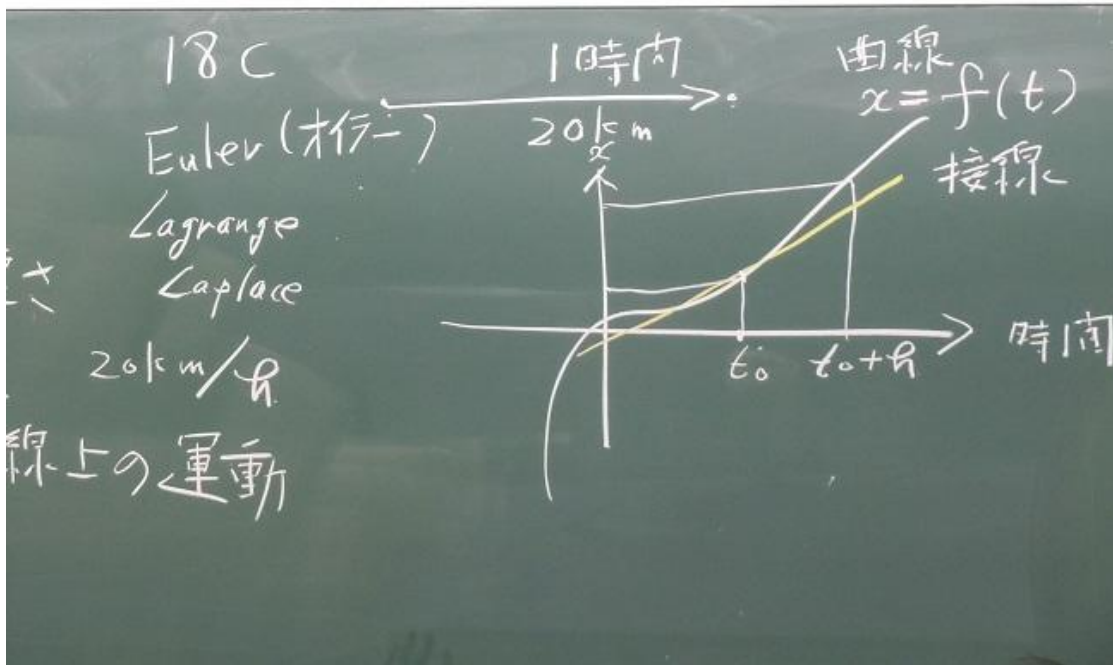 18C
Euler(オイラー)
Lagrange
Laplace
さ
20km/h
線上の運動
1時間
20km
x
曲線
x=f(t)
接線
t₀
t₀+h
時間